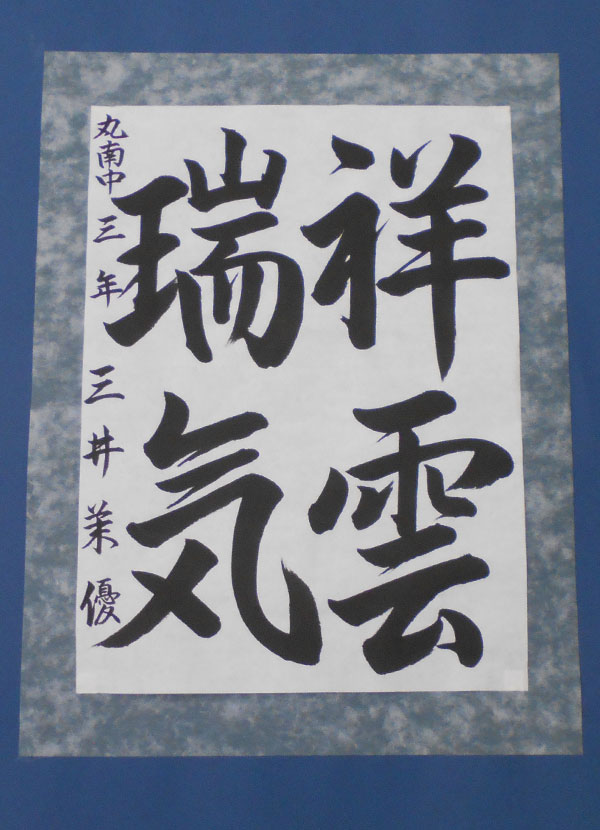 祥雲
瑞気
丸南中 三年 三井茉優